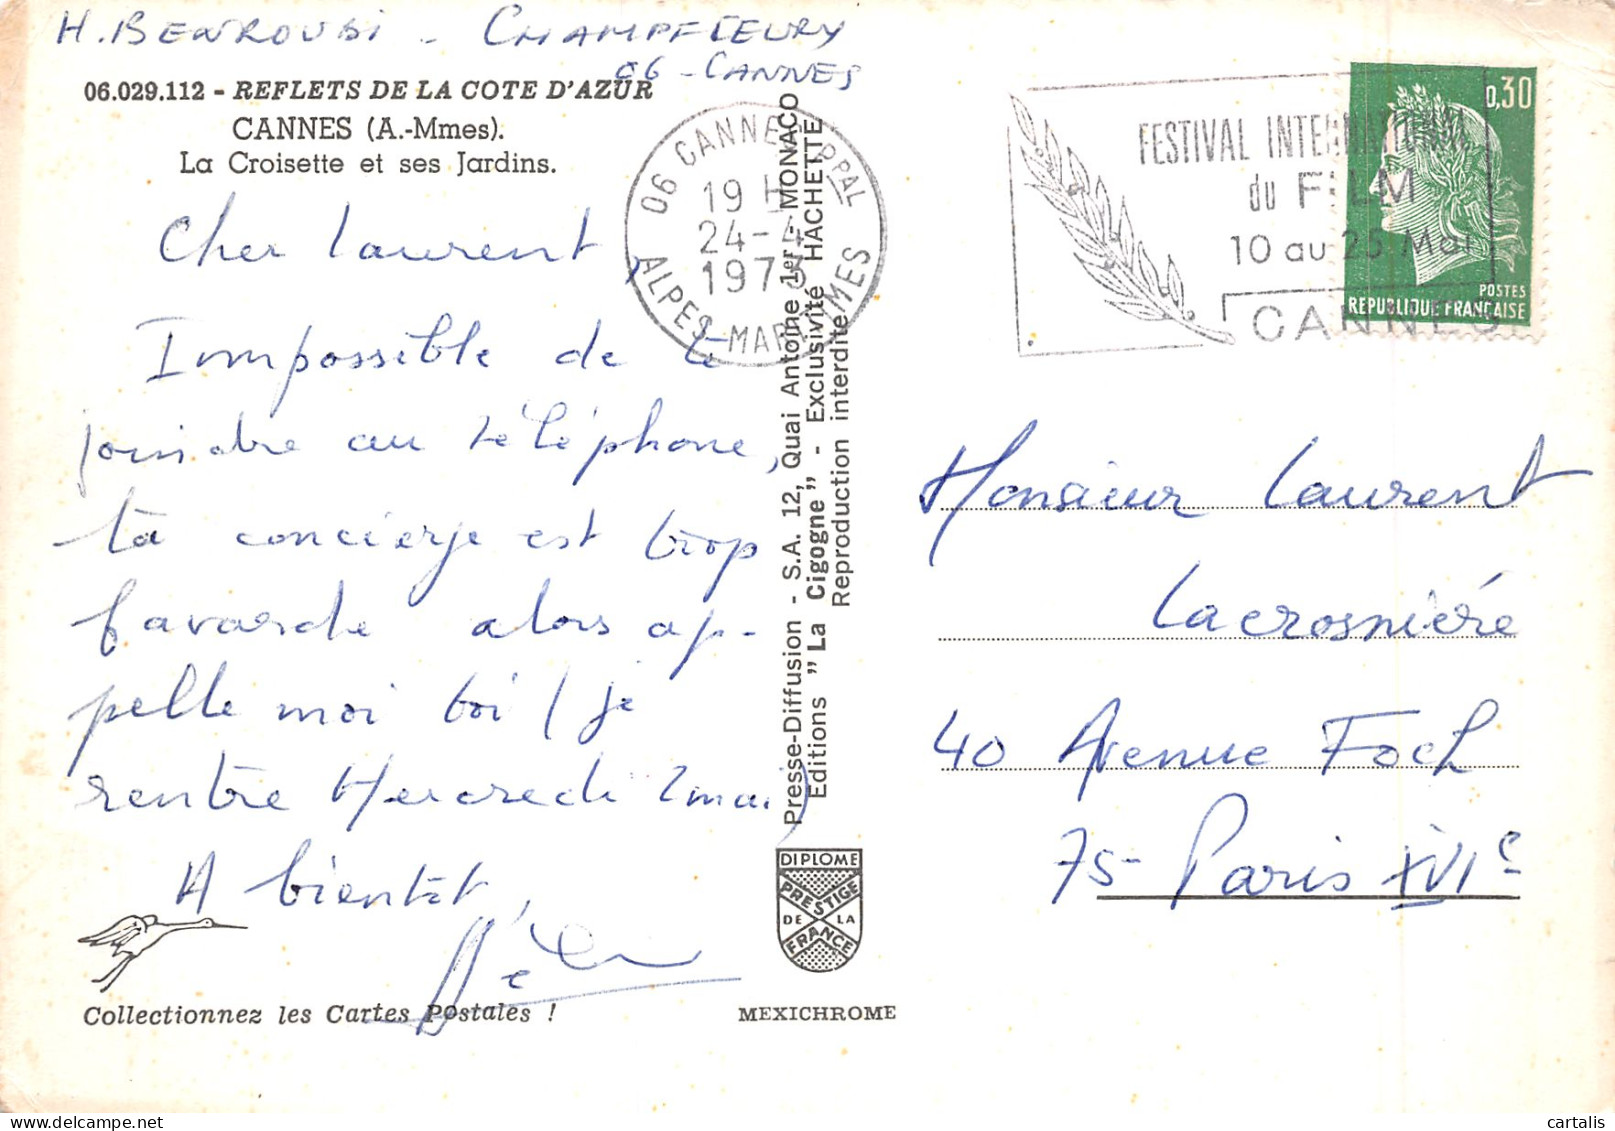 H. BENROUBI - CHAMPFLEURY
06 - CANNES
06.029.112 - REFLETS DE LA COTE D'AZUR
CANNES (A.-Mmes).
La Croisette et ses Jardins.
Cher Laurent,
Impossible de te
joindre au téléphone,
ta concierge est trop
bavarde alors ap-
pelle moi toi (je
rentre Mercredi 2 mai)
A bientôt,
Collectionnez les Cartes Postales !
06 CANNES PPAL
19 H
24-4
1973
ALPES-MARITIMES
Presse-Diffusion - S.A. 12, Quai Antoine 1er - MONACO
Editions "La Cigogne" - Exclusivité HACHETTE
Reproduction interdite
DIPLOME
PRESTIGE
DE LA
FRANCE
MEXICHROME
FESTIVAL INTERNATIONAL
du FILM
10 au 25 Mai
CANNES
0,30
POSTES
REPUBLIQUE FRANÇAISE
Monsieur Laurent
Lacrosniére
40 Avenue Foch
75- Paris XVIe
cartalis